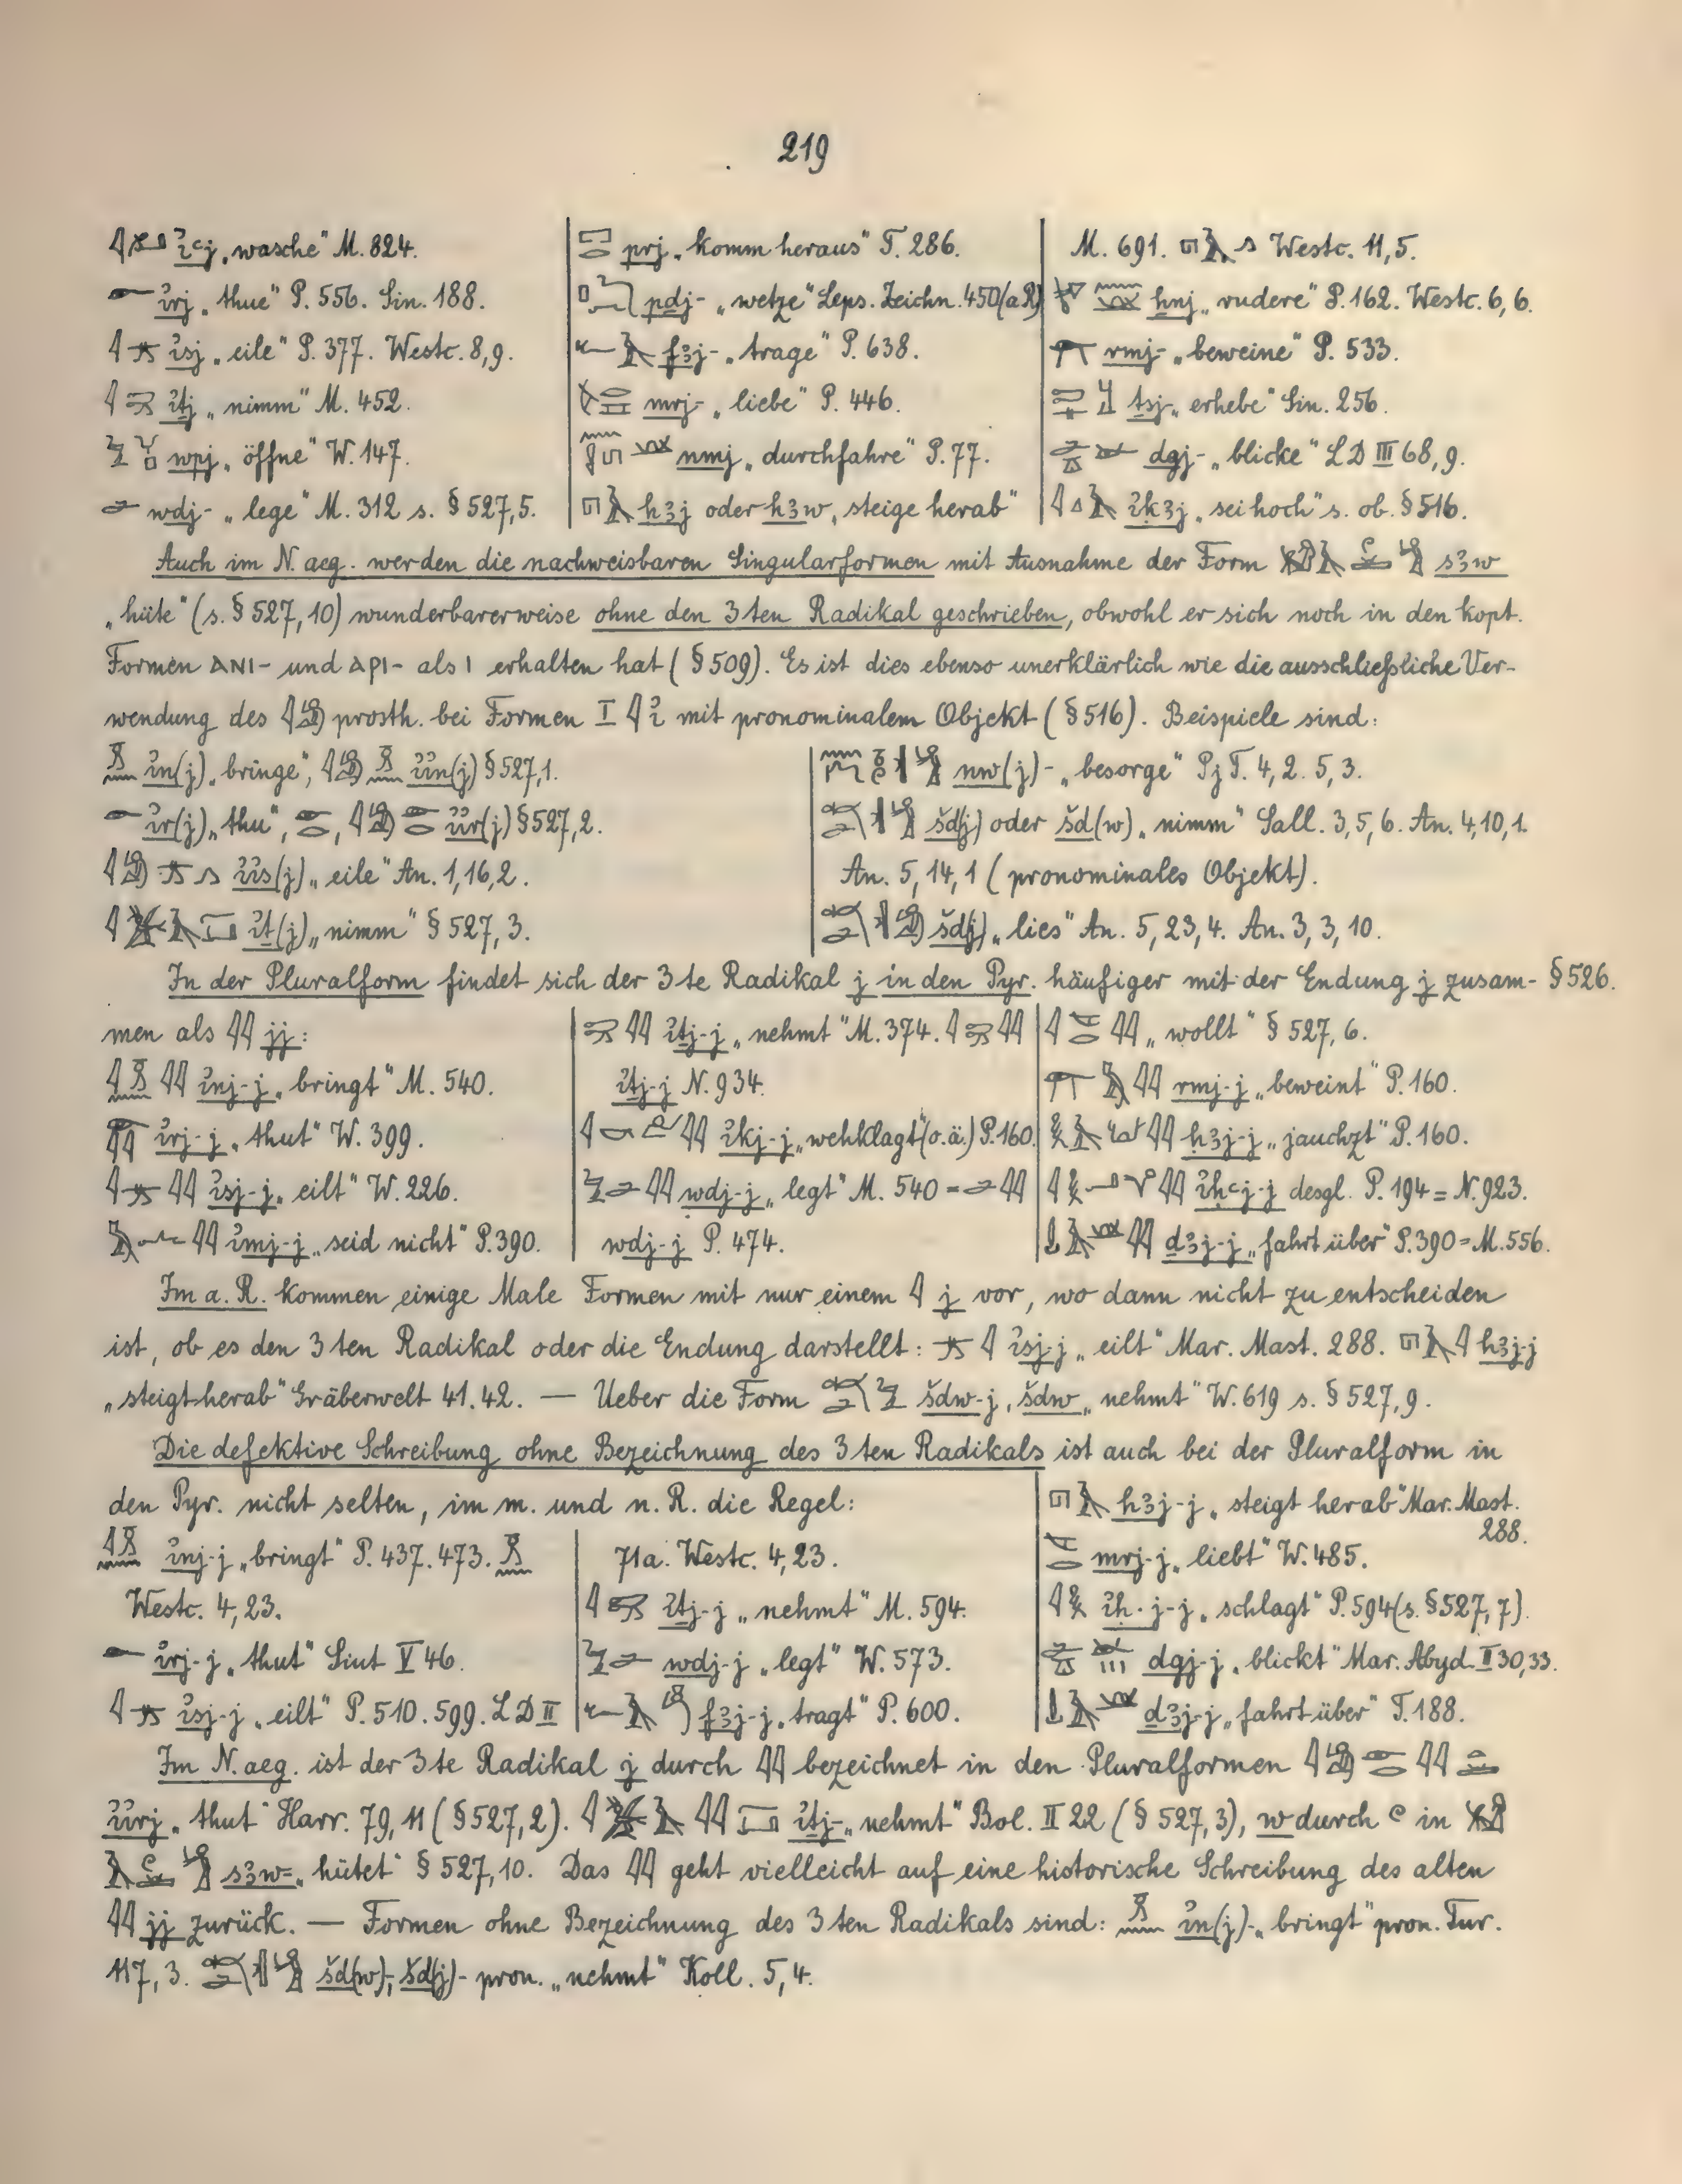 219
i҆ꜥj „wasche“ M. 824.
i҆rj „thue“ P. 556. Sin. 188.
i҆sj „eile“ P. 377. Westc. 8,9.
i҆ṯj „nimm“ M. 452.
wpj „öffne“ W. 147.
wdj- „lege“ M. 312 s. § 527,5.
prj „komm heraus“ T. 286.
pdj- „wetze“ Leps. Zeichn. 450 (a R)
fꜣj- „trage“ P. 638.
mrj- „liebe“ P. 446.
nmj „durchfahre“ P. 77.
hꜣj oder hꜣw „steige herab“
M. 691. Westc. 11,5.
ẖnj „rudere“ P. 162. Westc. 6,6.
rmj- „beweine“ P. 533.
ṯsj „erhebe“ Sin. 256.
dgj- „blicke“ LD III 68,9.
i҆ḳꜣj „sei hoch“ s. ob. § 516.
Auch im N. aeg. werden die nachweisbaren Singularformen mit Ausnahme der Form sꜣw
„hüte“ (s. § 527, 10) wunderbarerweise ohne den 3 ten Radikal geschrieben, obwohl er sich noch in den kopt.
Formen ⲁⲛⲓ- und ⲁⲣⲓ- als ⲓ erhalten hat (§ 509). Es ist dies ebenso unerklärlich wie die ausschließliche Ver-
wendung des prosth. bei Formen I i҆ mit pronominalem Objekt (§ 516). Beispiele sind:
i҆n(j) „bringe“, i҆i҆n(j) § 527,1.
i҆r(j) „thu“, i҆i҆r(j) § 527,2.
i҆i҆s(j) „eile“ An. 1,16,2.
i҆ṯ(j) „nimm“ § 527, 3.
nw(j)- „besorge“ Pj T. 4,2. 5,3.
šd(j) oder šd(w) „nimm“ Sall. 3,5,6. An. 4,10,1.
An. 5,14,1 (pronominales Objekt).
šd(j) „lies“ An. 5,23,4. An. 3,3,10.
In der Pluralform findet sich der 3 te Radikal j in den Pyr. häufiger mit der Endung j zusam- § 526.
men als jj:
i҆nj-j „bringt“ M. 540.
i҆rj-j „thut“ W. 399.
i҆sj-j „eilt“ W. 226.
i҆mj-j „seid nicht“ P. 390.
i҆ṯj-j „nehmt“ M. 374.
i҆ṯj-j N. 934.
i҆kj-j „wehklagt“ (o.ä.) P. 160.
wdj-j „legt“ M. 540 =
wdj-j P. 474.
„wollt“ § 527, 6.
rmj-j „beweint“ P. 160.
ḥꜣj-j „jauchzt“ P. 160.
i҆ḥꜥj-j desgl. P. 194 = N. 923.
ḏꜣj-j „fahrt über“ P. 390 = M. 556.
Im a. R. kommen einige Male Formen mit nur einem j vor, wo dann nicht zu entscheiden
ist, ob es den 3 ten Radikal oder die Endung darstellt: i҆sj-j „eilt“ Mar. Mast. 288. hꜣj-j
„steigt herab“ Gräberwelt 41. 42. — Ueber die Form šdw-j, šdw „nehmt“ W. 619 s. § 527, 9.
Die defektive Schreibung ohne Bezeichnung des 3 ten Radikals ist auch bei der Pluralform in
den Pyr. nicht selten, im m. und n. R. die Regel:
i҆nj-j „bringt“ P. 437. 473.
Westc. 4,23.
i҆rj-j „thut“ Siut V 46.
i҆sj-j „eilt“ P. 510. 599. LD II
71a. Westc. 4,23.
i҆ṯj-j „nehmt“ M. 594.
wdj-j „legt“ W. 573.
fꜣj-j „tragt“ P. 600.
hꜣj-j „steigt herab“ Mar. Mast.
288.
mrj-j „liebt“ W. 485.
i҆ḥ.j-j „schlagt“ P. 594 (s. § 527, 7).
dgj-j „blickt“ Mar. Abyd. II 30,33.
ḏꜣj-j „fahrt über“ T. 188.
Im N. aeg. ist der 3 te Radikal j durch bezeichnet in den Pluralformen
i҆i҆rj „thut“ Harr. 79, 11 (§ 527, 2). i҆ṯj- „nehmt“ Bol. II 22 (§ 527, 3), w durch in
sꜣw= „hütet“ § 527, 10. Das geht vielleicht auf eine historische Schreibung des alten
jj zurück. — Formen ohne Bezeichnung des 3 ten Radikals sind: i҆n(j)- „bringt“ pron. Tur.
117, 3. šd(w)-, šd(j)- pron. „nehmt“ Koll. 5,4.